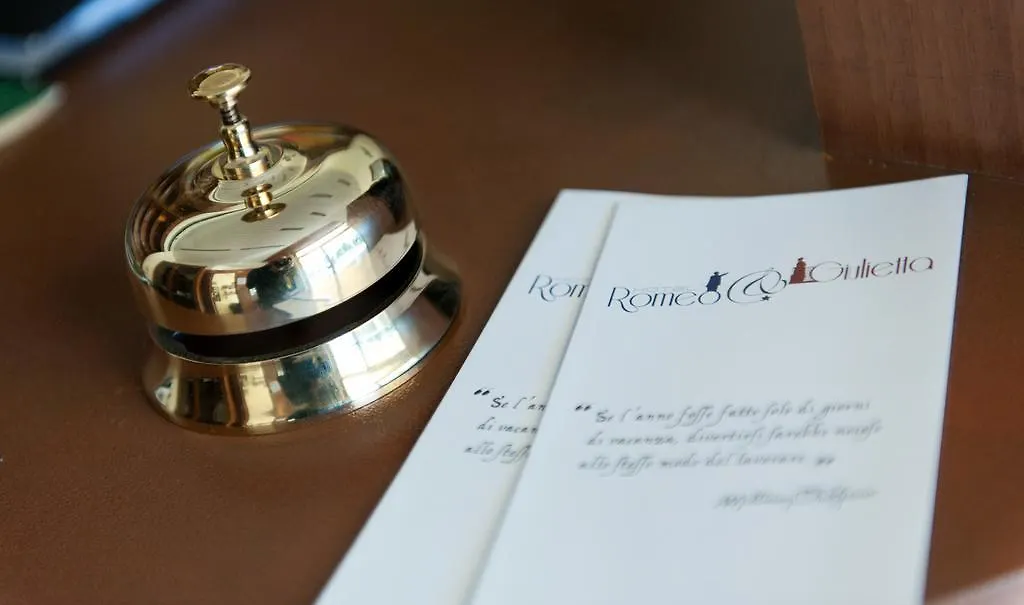 Rom
“ Se l'an
di vacan
allo stess
HOTEL
Romeo & Giulietta
“ Se l'anno fosse fatto solo di giorni
di vacanza, divertirsi sarebbe noioso
allo stesso modo del lavorare ”